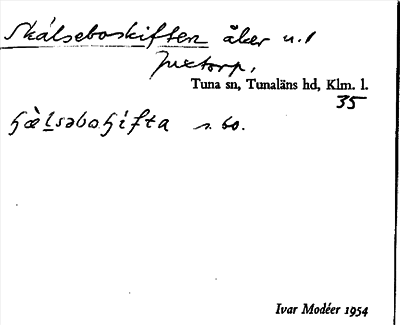 Skálseboskiften åker u. l
Juxtorp,
Tuna sn, Tunaläns hd, Klm. l.
35
ɧæ̀lsəboɧifta s. bo.
Ivar Modéer 1954